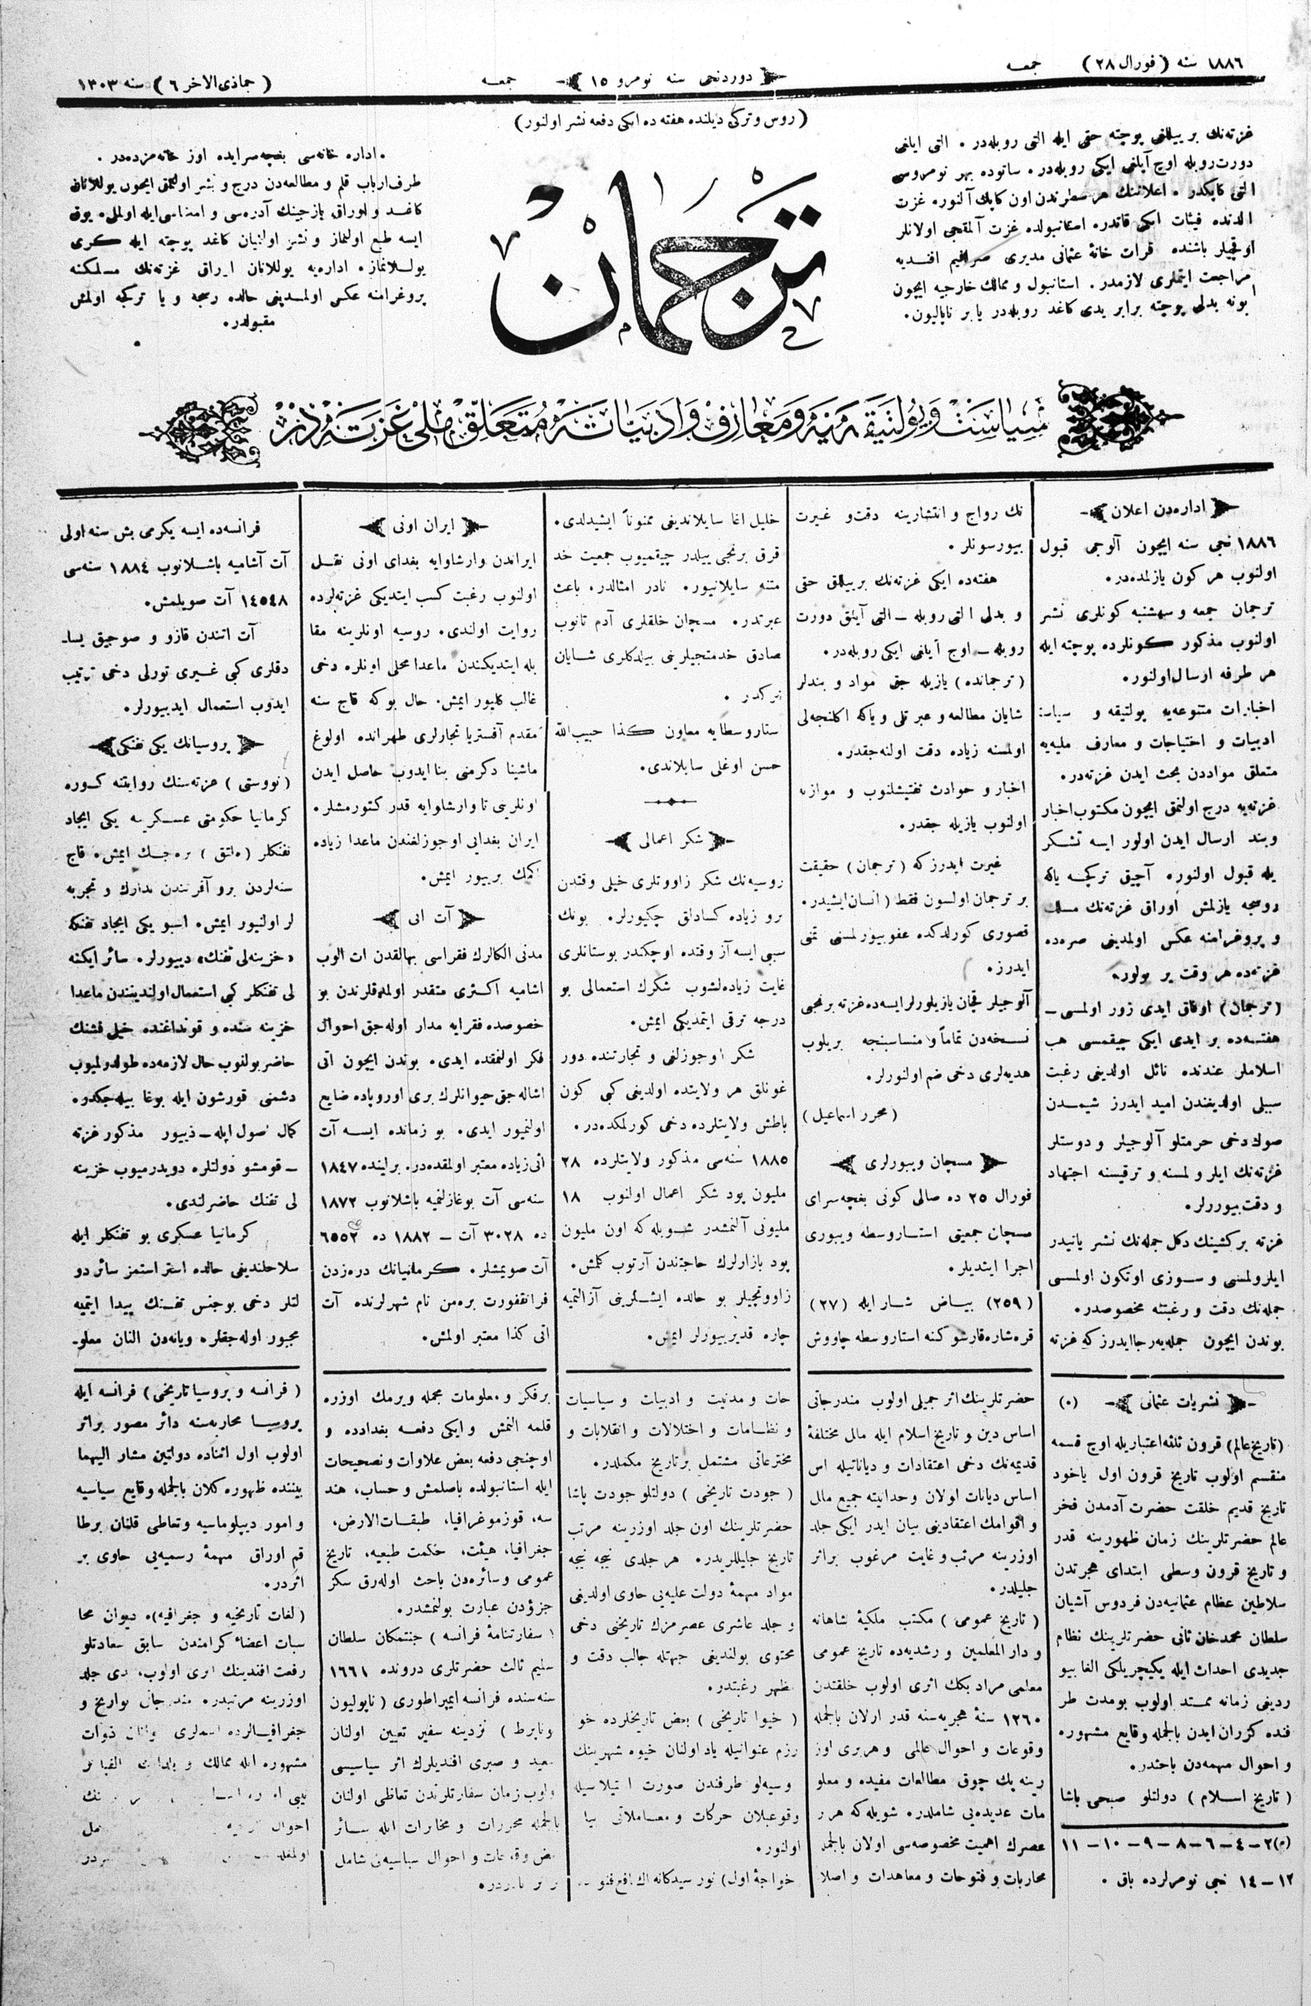 ١٨٨٦ سنه (فورال ٢٨) جمعه
دوردنجى سنه نومرو ١٥
جمعه (جماذى الاخر ٦) سنه ١٣٠٣
(روس و تركى ديلنده هفته ده ايكى دفعه نشر اولنور)
غزته‌نك بر ييللقى پوچته حقى ايله التى روبله‌در. التى ايلغى
دورت روبله اوچ آيلغى ايكى روبله‌در. ساتوده بهر نومروسى
التى كاپكدر. اعلاننك هر سطرندن اون كاپك آلنور. غزت
الدنده فيئات ايكى قاتدر. استانبولده غزت آلمقجى اولانلر
اوقجيلر باشنده قرات خانۀ عثمانى مديرى صرافيم افنديه
مراجعت ايتملرى لازمدر. استانبول و ممالك خارجيه ايچون
ابونه بدلى پوچته برابر يدى كاغد روبله‌در يا بر ناپاليون.
ترجمان
اداره خانه‌سى بغچه‌سرايده اوز خانه‌مزده‌در.
طرف ارباب قلم و مطالعه‌دن درج و نشر اولنمق ايچون يوللانان
كاغد و اوراق يازجينك آدره‌سى و امضاسى ايله اولملى. يوق
ايسه طبع اولنماز و نشر اولنميان كاغد پوچته ايله كرى
يوللانماز. اداره‌يه يوللانان اوراق غزته‌نك مسلكنه
پروغرامنه عكس اولمدينى حالده رسجه و يا تركجه اولمش
مقبولدر.
سياست و پوليتيقه‌يه و معارف و ادبياته متعلق ملى غزته‌در
اداره‌دن اعلان
١٨٨٦ نجى سنه ايچون آلوجى قبول
اولنوب هر كون يازلمده‌در.
ترجمان جمعه و سه‌شنبه كونلرى نشر
اولنوب مذكور كونلرده پوچته ايله
هر طرفه ارسال اولنور.
اخبارات متنوعه‌يه پولتيقه و سياسة
ادبيات و احتياجات و معارف مليه‌يه
متعلق مواددن بحث ايدن غزته‌در.
غزته‌يه درج اولنمق ايچون مكتوب اخبار
و بند ارسال ايدن اولور ايسه تشكر
يله قبول اولنور. آچيق تركجه ياكه
روسجه يازلمش اوراق غزته‌نك مسلك
و پروغرامنه عكس اولمدينى صره‌ده
غزته‌ده هر وقت ير بولور.
(ترجمان) اوفاق ايدى زور اولمسى -
هفته‌ده بر ايدى ايكى چيقمسى هب
اسلاملر عندنده نائل اولدينى رغبت
سببلى اولديغندن اميد ايدرز شيمدن
صوك دخى حرمتلو آلوجيلر و دوستلر
غزته‌نك ايلرولمسنه و ترقيسنه اجتهاد
و دقت بيوررلر.
غزته بر كشينك دكل جمله‌نك نشر يانيدر
ايلرولمسنى و سوزى اوتكون اولمسى
جمله‌نك دقت و رغبتنه مخصوصدر.
بوندن ايچون جمله‌يه رجا ايدرز كه غزته
نك رواج و انتشارينه دقت و غيرت
بيورسونلر.
هفته‌ده ايكى غزته‌نك بر ييللق حقى
و بدلى التى روبله - التى آيلق دورت
روبله - اوچ آيلغى ايكى روبله‌در.
(ترجمانده) يازيله جق مواد و بندلر
شايان مطالعه و عبرتلى و ياكه اكلنجه‌لى
اولمسنه زياده دقت اولنه‌جقدر.
اخبار و حوادث تفتيشلنوب و موازنه
اولنوب يازيله جقدر.
غيرت ايدرزكه (ترجمان) حقيقت
بر ترجمان اولسون فقط (انسان ايشيدر.
قصورى كورلدكده عفو بيورلمسنى تمنى
ايدرز.
آلوجيلر قچان يازيلورلر ايسه‌ده غزته برنجى
نسخه‌دن تماماً و مناسبنجه بريلوب
هديه‌لرى دخى ضم اولنورلر.
(محرر اسماعيل)
مسچان ويبورلرى
فورال ٢٥ ده صالى كونى بغچه‌سراى
مسچان جمعيتى استاروسطه ويبورى
اجرا ايتديلر.
(٢٥٩) بياض شار ايله (٢٧)
قره شاره قارشو كنه استاروسطه چاووش
خليل اغا سايلانديغى ممنوناً ايشيدلدى.
قرق برنجى ييلدر چيقميوب جمعيت خد
متنه سايلانيور. نادر امثالدر. باعث
عبرتدر. مسچان خلقلرى آدم تانوب
صادق خدمتجيلرينى بيلدكلرى شايان
تبركدر.
ستاروسطايه معاون كذا حبيب‌الله
حسن اوغلى سايلاندى.
شكر اعمالى
روسيه‌نك شكر زاووتلرى خيلى وقتدن
برو زياده كساداق چكيورلر. بونك
سببى ايسه آز وقتده اوچكندر بوستانلرى
غايت زياده‌لشوب شكرك استعمالى بو
درجه ترقى ايتمديكى ايمش.
شكر اوجوزلغى و تجارتنده دور
غونلق هر ولايتده اولدينى كبى كون
باطش ولايتلرده دخى كورلمكده‌در.
١٨٨٥ سنه‌سى مذكور ولايتلرده ٢٨
مليون پود شكر اعمال اولنوب ١٨
مليونى آلنمشدر شويله كه اون مليون
پود بازارلرك حاجتندن آرتوب كلمش.
زاووتجيلر بو حالده ايشلرينى آزالتميه
چاره قديريورلر ايمش.
ايران اونى
ايراندن وارشاوايه بغداى اونى نقل
اولنوب رغبت كسب ايتديكى غزته‌لرده
روايت اولندى. روسيه اونلرينه مقا
بله ايتديكندن ماعدا محلى اونلره دخى
غالب كليور ايمش. حال بوكه قاچ سنه
مقدم آفستريا تجارلرى طهرانده اولوغ
ماشينا دكرمنى بنا ايدوب حاصل ايدن
اونلرينى تا وارشاوايه قدر كتورمشلر.
ايران بغدايى اوجوزلغندن ماعدا زياده
اكمك بريبور ايمش.
آت اتى
مدنى الكالرك فقراسى بهالقدن ات الوب
اشاميه اكثرى متقدر اولمه‌قلرندن بو
خصوصده فقرايه مدار اوله‌جق احوال
فكر اولنمقده ايدى. بوندن ايچون اتى
اشاله‌جق حيوانلرك برى اوروپاده ضايع
اولنميور ايدى. بو زمانده ايسه آت
اتى زياده معتبر اولمقده‌در. برلينده ١٨٤٧
سنه‌سى آت بوغازلنميه باشلانوب ١٨٧٢
ده ٣٠٢٨ آت - ١٨٨٢ ده ٦٥٥٢
آت صويمشلر. كرمانيانك دره‌زدن
فرانقفورت بره‌من نام شهرلرنده آت
اتى كذا معتبر اولمش.
فرانسه‌ده ايسه يكرمى بش سنه اولى
آت آشاميه باشلانوب ١٨٨٤ سنه‌سى
١٤٥٤٨ آت صويلمش.
آت اتندن قازو و صوجيق يسا-
دقلرى كبى غيرى تورلى دخى ترتيب
ايدوب استعمال ايديبورلر.
پروسيانك يكى تفنكى
(نووستى) غزته‌سنك روايتنه كوره
كرمانيا حكومتى عسكرينه يكى ايجاد
تفنكلر ايمش. قاچ
سنه‌لردن برو آقرتندن تدارك و تجربه
لر اولنيور ايمش. اسبو يكى ايجاد تفنكه
«خزينه‌لى تفنك» ديبورلر. سائر ايكنه
لى تفنكلر كبى استعمال اولنديغندن ماعدا
خزينه سنده و قونداغنده خيلى فشنك
حاضر بولنوب حال لازمه‌ده طولدولميوب
دشمنى قورشون ايله بوغا بيله‌جكدر.
كمال اصول ايله - ذيبور مذكور غزته
- قومشو دولتلره دويدرميوب خزينه
لى تفنك حاضرلندى.
كرمانيا عسكرى بو تفنكلر ايله
سلاحلنديغى حالده استر استمز سائر دو
لتلر دخى بوجنس تفنك پيدا ايتميه
مجبور اوله‌جقلر. ويانه‌دن النان معلو-
نشريات عثمانى (٠)
(تاريخ عالم) قرون ثلثه اعتباريله اوچ قسمه
منقسم اولوب تاريخ قرون اول ياخود
تاريخ قديم خلقت حضرت آدمدن فخر
عالم حضرتلرينك زمان ظهورينه قدر
و تاريخ قرون وسطى ابتداى هجرتدن
سلاطين عظام عثمانيه‌دن فردوس آشيان
سلطان محمد خان ثانى حضرتلرينك نظام
جديدى احداث ايله يكيچريلكى الغا بيو
رديغى زمانه ممتد اولوب بومدت ظر
فنده كزران ايدن بالجمله وقايع مشهوره
و احوال مهمه‌دن باحثدر.
(تاريخ اسلام) دولتلو صبحى پاشا
(٥) ٢-٤-٦-٨-٩-١٠-١١
١٢-١٤ نجى نومرلرده باق.
حضرتلرينك اثر جميلى اولوب مندرجاتى
اساس دين و تاريخ اسلام ايله مال مختلفۀ
قديمه‌نك دخى اعتقادات و دياناتيله اس
اساس ديانات اولان وحدانيته جميع مال
و اقوامك اعتقادينى بيان ايدر ايكى جلد
اوزرينه مرتب و غايت مرغوب براثر
جليلدر.
(تاريخ عمومى) مكتب ملكيۀ شاهانه
و دار المعلمين و رشديه‌ده تاريخ عمومى
معلمى مراد بكك اثرى اولوب خلقتدن
١٢٦٠ سنۀ هجريه‌سنه قدر اولان بالجمله
وقوعات و احوال عالمى و هر برى اوز
رينه پك چوق مطالعات مفيده و معلو
مات عديده‌يى شاملدر. شويله كه هر ر
عصرك اهميت مخصوصه‌سى اولان بالجمله
محاربات و فتوحات و معاهدات و اصلا
حات و مدنيت و ادبيات و سياسيات
و نظامات و اختلالات و انقلابات و
مخترعاتى مشتمل بر تاريخ مكملدر.
(جودت تاريخى) دولتلو جودت پاشا
حضرتلرينك اون جلد اوزرينه مرتب
تاريخ جليللريدر. هر جلدى نيجه نيجه
مواد مهمۀ دولت عليه‌يى حاوى اولديغى
و جلد عاشرى عصر مزك تاريخنى دخى
محتوى بولنديغى جهتله جالب دقت و
مظهر رغبتدر.
(خيوا تاريخى) بعض تاريخلرده خو
رزم عنوانيله ياد اولنان خيوه شهرينك
و سيه‌لو طرفندن صورت استيلاسيله
وقوعبلان حركات و معاملاتى بيا
اولنور.
خواجۀ اول) نور سيدكانه
بر فكر و معلومات مجمله ويرمك اوزره
قلمه النمش و ايكى دفعه بغدادده و
اوچنجى دفعه بعض علاوات و تصحيحات
ايله استانبولده باصلمش و حساب، هند
سه، قوزموغرافيا، طبقات الارض،
جغرافيا، هيئت، حكمت طبيعيه، تاريخ
عمومى و سائره‌دن باحث اوله‌رق سكز
جزؤدن عبارت بولنمشدر.
(سفارتنامۀ فرانسه) جنتمكان سلطان
سليم ثالث حضرتلرى درونده ١٦٦١
سنه‌سنده فرانسه ايمپراطورى (ناپوليون
بوناپرط) نزدينه سفير تعيين اولنان
سعيد و صبرى افنديلرك اثر سياسيسى
اولوب زمان سفارتلرندن تعاطى اولنان
بالجمله محررات و مخابرات ايله سائر
بعض وقوعات و احوال سياسيه‌يى شامل
(فرانسه و پروسيا تاريخى) فرانسه ايله
پروسيا محاربه‌سنه دائر مصور براثر
اولوب اول اثناده دولتين مشار اليهما
بيننده ظهوره كلان بالجمله وقايع سياسيه
و امور ديپلوماسيه و تعاطى قلنان برطا
قم اوراق مهمۀ رسميه‌يى حاوى بر
اثردر.
(لغات تاريخيه و جغرافيه). ديوان محا
سبات اعضاء كرامندن سابق سعادتلو
رفعت افندينك اثرى اولوب، يدى جلد
اوزرينه مرتبدر. مندرجاتى تواريخ و
جغرافيالرده اسملرى ذوات
مشهوره ايله ممالك و بلدانك الفبا